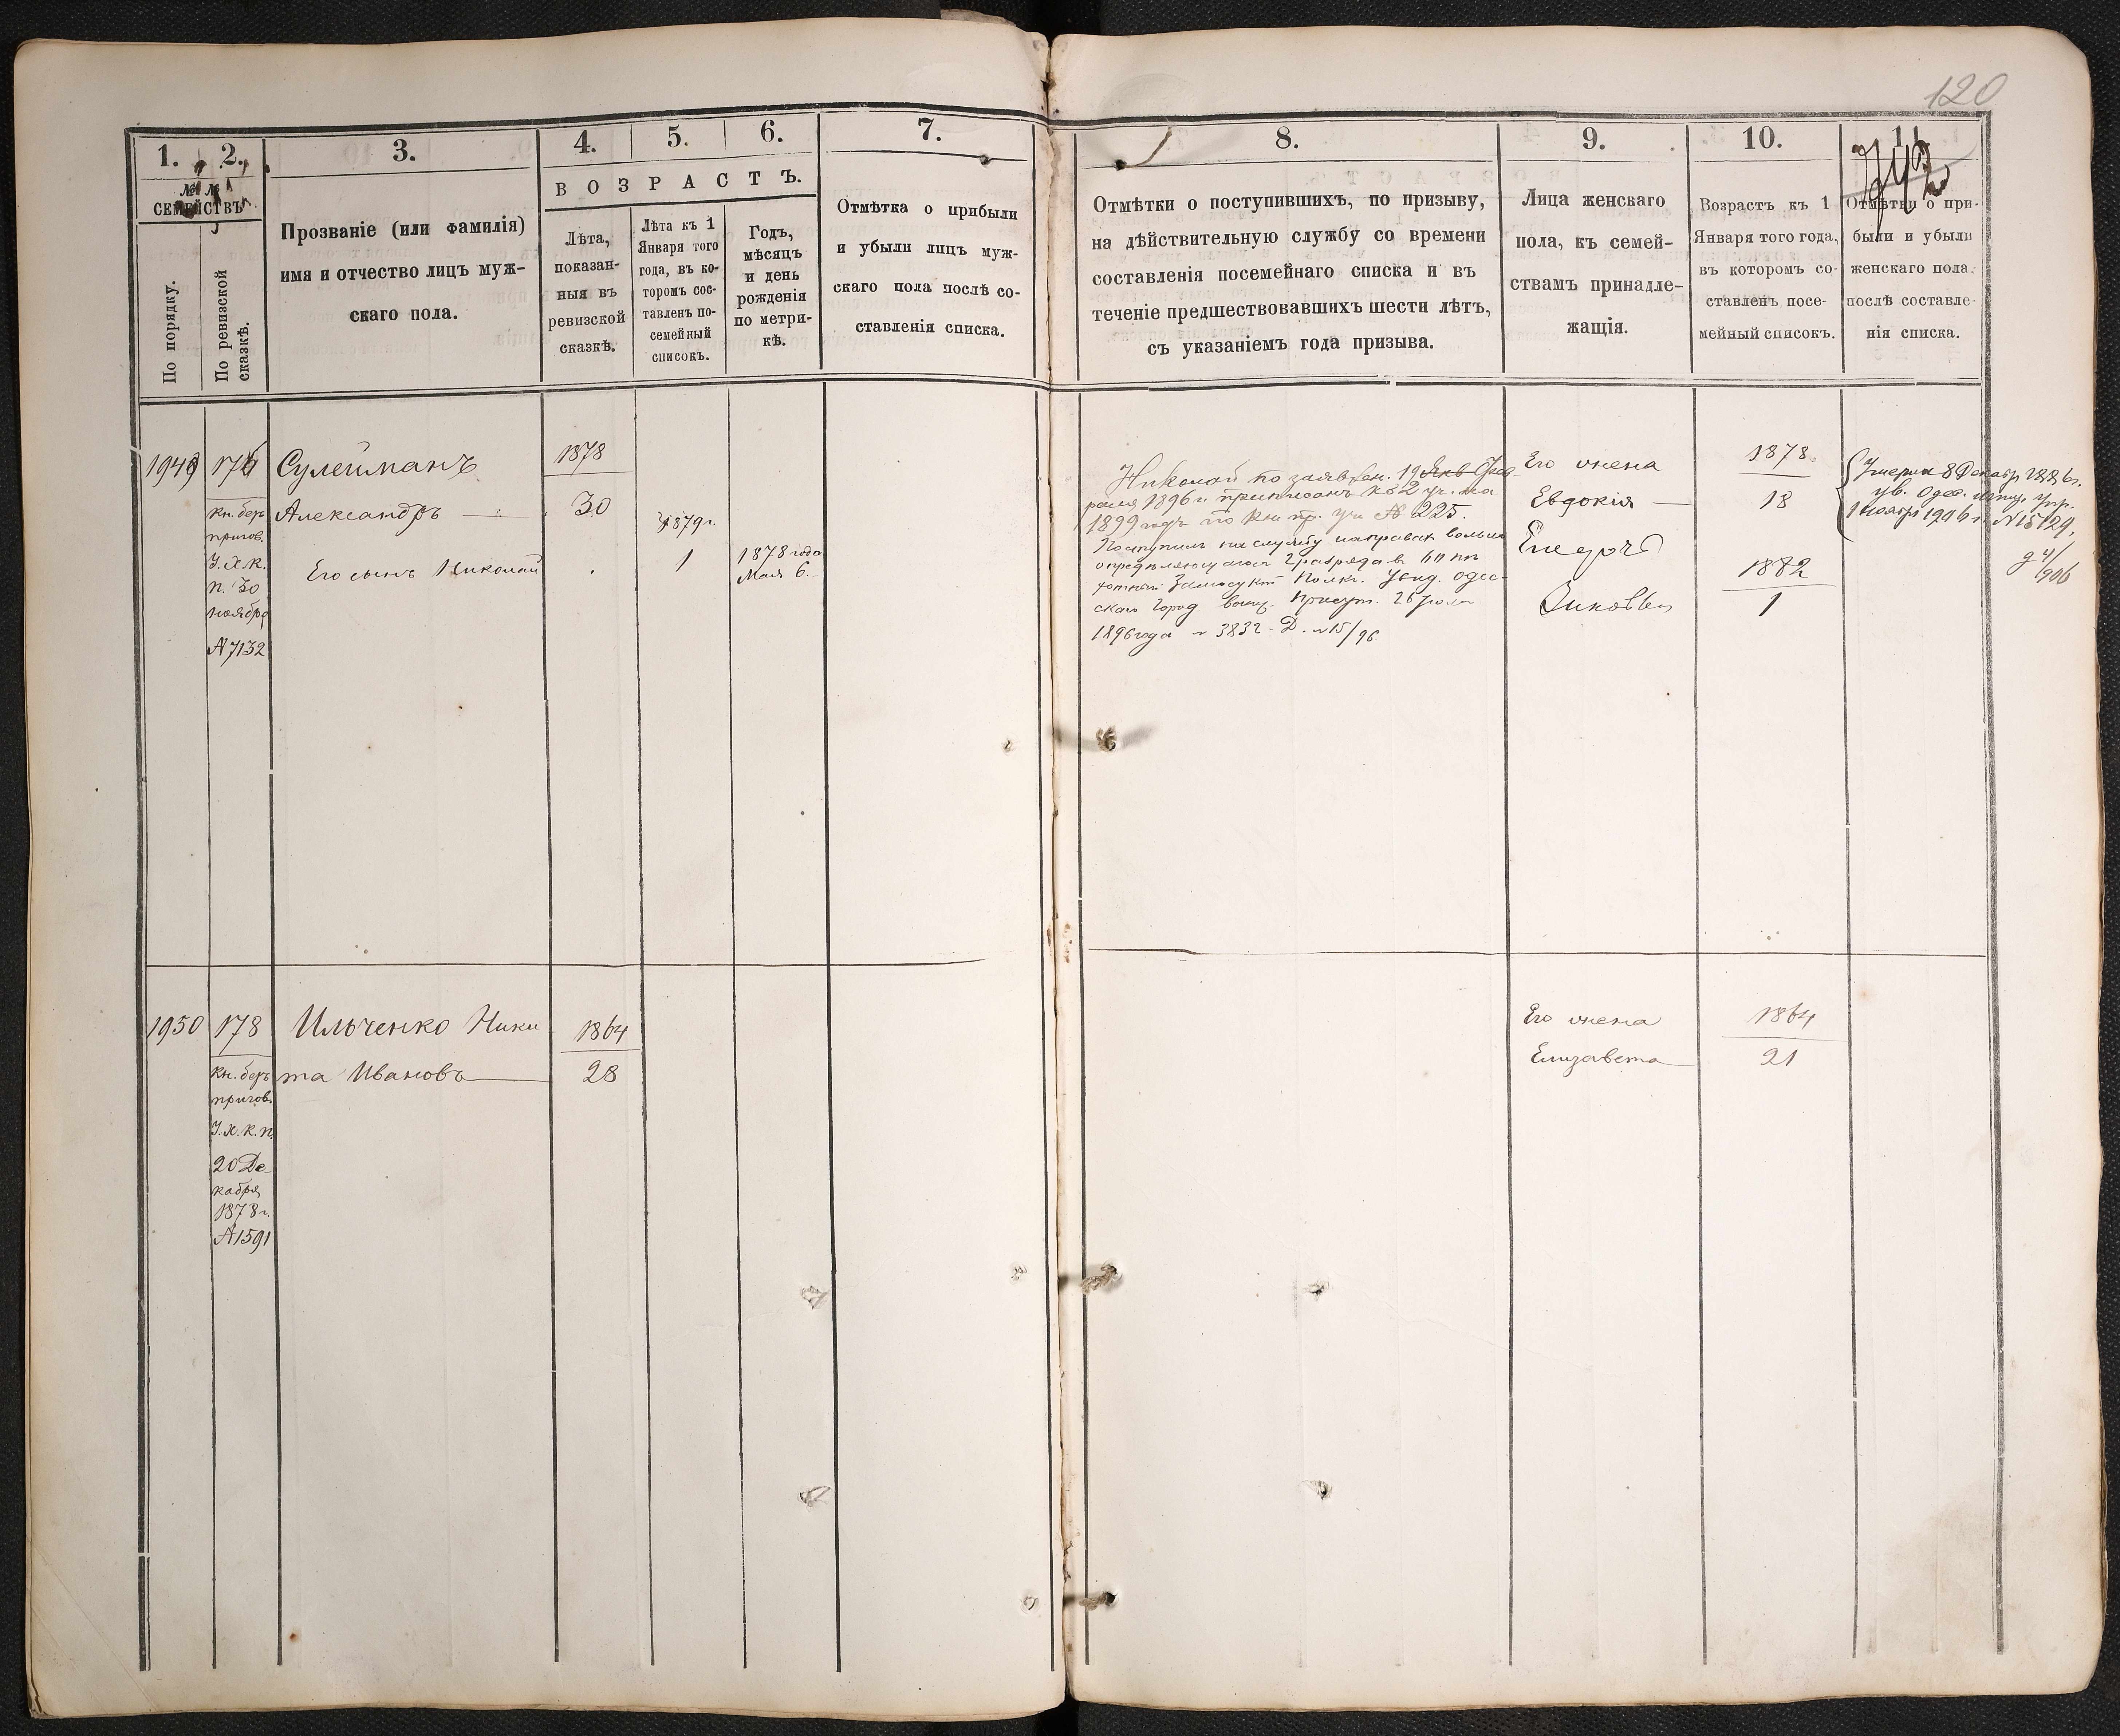 120
1.
2.
3.
4.
5.
6.
7.
8.
9.
10.
11
№ №
СЕМЕЙСТВЪ
По порядку.
По ревизской
сказкѣ.
Прозваніе (или фамилія)
имя и отчество лицъ муж-
скаго пола.
ВОЗРАСТЪ.
Лѣта,
показан-
ныя въ
ревизской
сказкѣ.
Лѣта къ 1
Января того
года, въ ко-
торомъ сос-
тавленъ по-
семейный
списокъ.
Годъ,
мѣсяцъ
и день
рожденія
по метри-
кѣ.
Отмѣтка о прибыли
и убыли лицъ муж-
скаго пола послѣ со-
ставленія списка.
Отмѣтки о поступившихъ, по призыву,
на дѣйствительную службу со времени
составленія посемейнаго списка и въ
теченіе предшествовавшихъ шести лѣтъ,
съ указаніемъ года призыва.
Лица женскаго
пола, къ семей-
ствамъ принадле-
жащія.
Возрастъ къ 1
Января того года,
въ которомъ со-
ставленъ посе-
мейный списокъ.
Отмѣтки о при-
были и убыли
женскаго пола
послѣ составле-
нія списка.
1949
176
кн. беръ
пригов.
У. Х. К.
П. 30
ноября
№ 7132
Сулейманъ
Александръ
Его сынъ Николай
1878
30
1879 г.
1
1878 года
Мая 6.
Николай по заявлен. 19 Янв Фев
раля 1896 г. приписанъ къ 2 уч. на
1899 годъ по кн. пр. уч. № 225.
Поступилъ на службу на правахъ вольно
опредѣляющагося 2 разряда въ 60 пѣ
хотный Замосцкій Полкъ. Увѣд. Одес-
скаго Город. воинс. Присут. 26 
1896 года № 3832. Д. № 15/96
Его жена
Евдокія
Его дочь
Зиновія
1878
18
1882
1
Умерла 8 Декабр 1886 г.
ув. Одес. упр.
1 ноября 1906 г. № 15129,
1950
178
кн. беръ
пригов.
У. Х. К. П.
20 Де
кабря
1878 г.
№ 1591
Ильченко Ники
та Ивановъ
1864
28
Его жена
Елизавета
1864
21